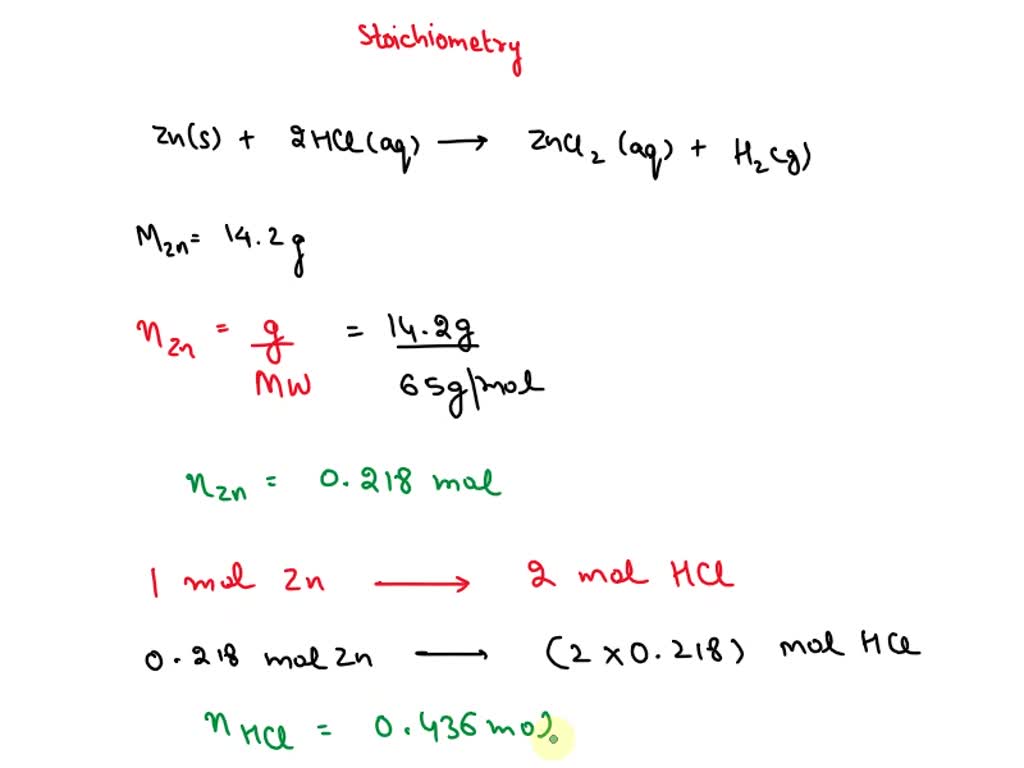 Stoichiometry
Zn(s) + 2HCl(aq) ⟶ ZnCl₂ (aq) + H₂(g)
M_Zn = 14.2g
n_Zn = g/MW = 14.2g/65g/mol
n_Zn = 0.218 mol
1 mol Zn ⟶ 2 mol HCl
0.218 mol Zn ⟶ (2 × 0.218) mol HCl
n_HCl = 0.436 mol